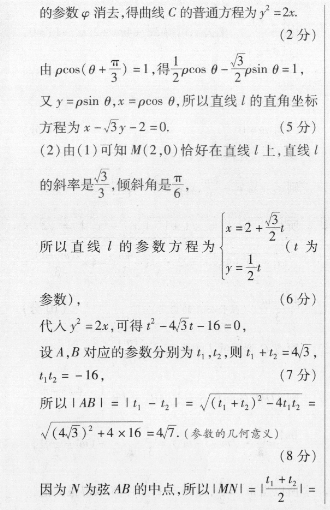 的参数 φ 消去,得曲线 C 的普通方程为 y² = 2x.
(2 分)
由 ρcos(θ + π/3) = 1,得 1/2 ρcos θ − √3/2 ρsin θ = 1,
又 y = ρsin θ,x = ρcos θ,所以直线 l 的直角坐标
方程为 x − √3y − 2 = 0. (5 分)
(2)由(1)可知 M(2,0)恰好在直线 l 上,直线 l
的斜率是 √3/3,倾斜角是 π/6,
所以直线 l 的参数方程为 { x = 2 + √3/2 t, y = 1/2 t (t 为
参数), (6 分)
代入 y² = 2x,可得 t² − 4√3t − 16 = 0,
设 A,B 对应的参数分别为 t₁,t₂,则 t₁ + t₂ = 4√3,
t₁t₂ = −16, (7 分)
所以 |AB| = |t₁ − t₂| = √((t₁ + t₂)² − 4t₁t₂) =
√((4√3)² + 4 × 16) = 4√7. (参数的几何意义)
(8 分)
因为 N 为弦 AB 的中点,所以 |MN| = |(t₁ + t₂)/2| =